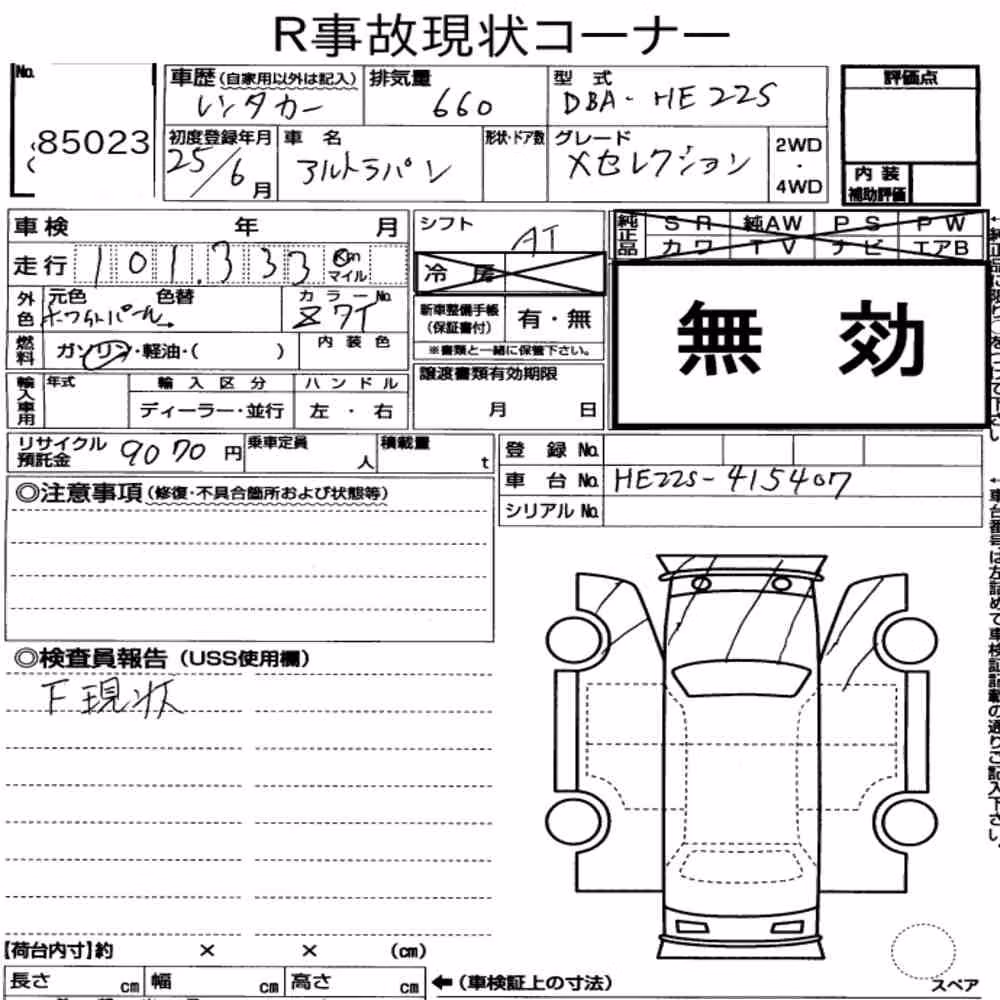 R事故現状コーナー
No.
85023
車歴(自家用以外は記入)
レンタカー
排気量
660
型式
DBA-HE22S
評価点
初度登録年月
25/6月
車名
アルトラパン
形状・ドア数
グレード
Xセレクション
2WD
・
4WD
内装
補助評価
車検 年 月
走行 101,333 Km
マイル
外色
元色 色替
ホワイトパール
カラーNo.
Z7T
燃料
ガソリン・軽油・( )
内装色
輸入車用
年式
輸入区分
ディーラー・並行
ハンドル
左・右
シフト
AT
冷房
新車整備手帳
(保証書付)
有・無
※書類と一緒に保管下さい。
譲渡書類有効期限
月 日
純正品
SR 純AW PS PW
カワ TV ナビ エアB
無効
リサイクル預託金 9070円
乗車定員
人
積載量
t
登録No.
車台No. HE22S-415407
シリアルNo.
◎注意事項(修復・不具合箇所および状態等)
◎検査員報告(USS使用欄)
下現状
【荷台内寸】約 × × (cm)
長さ cm 幅 cm 高さ cm
←(車検証上の寸法)
スペア
←車台番号は左詰めで車検証記載の通りご記入下さい。